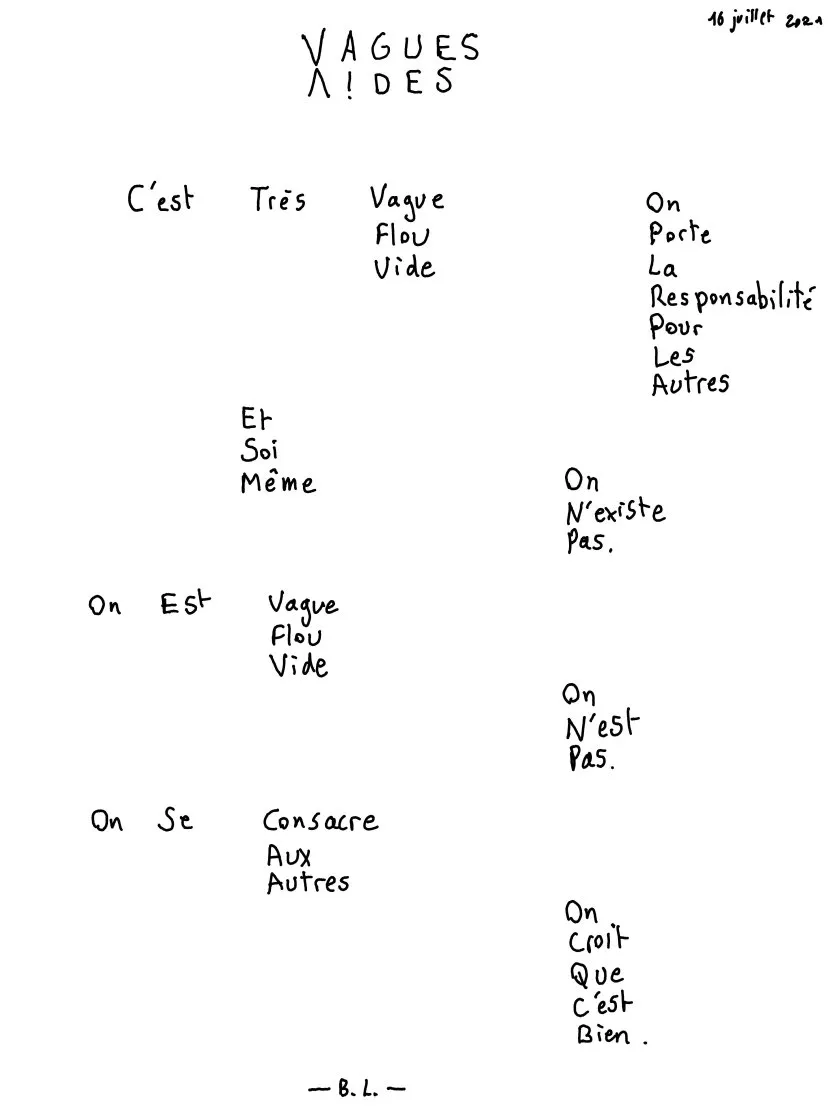 16 juillet 2021
VAGUES
V!DES
C'est Très Vague
Flou
Vide
On
Porte
La
Responsabilité
Pour
Les
Autres
Et
Soi
Même
On
N'existe
Pas.
On Est Vague
Flou
Vide
On
N'est
Pas.
On Se Consacre
Aux
Autres
On
Croit
Que
C'est
Bien.
— B.L. —